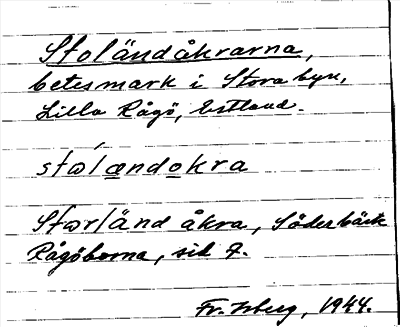 Stoländåkrarna,
betesmark i Stora byn,
Lilla Rågö, Estland.
stωlændokra
Størländ åkra, Söderbäck
Rågöborna, sid 7.
Fr. Isberg, 1944.